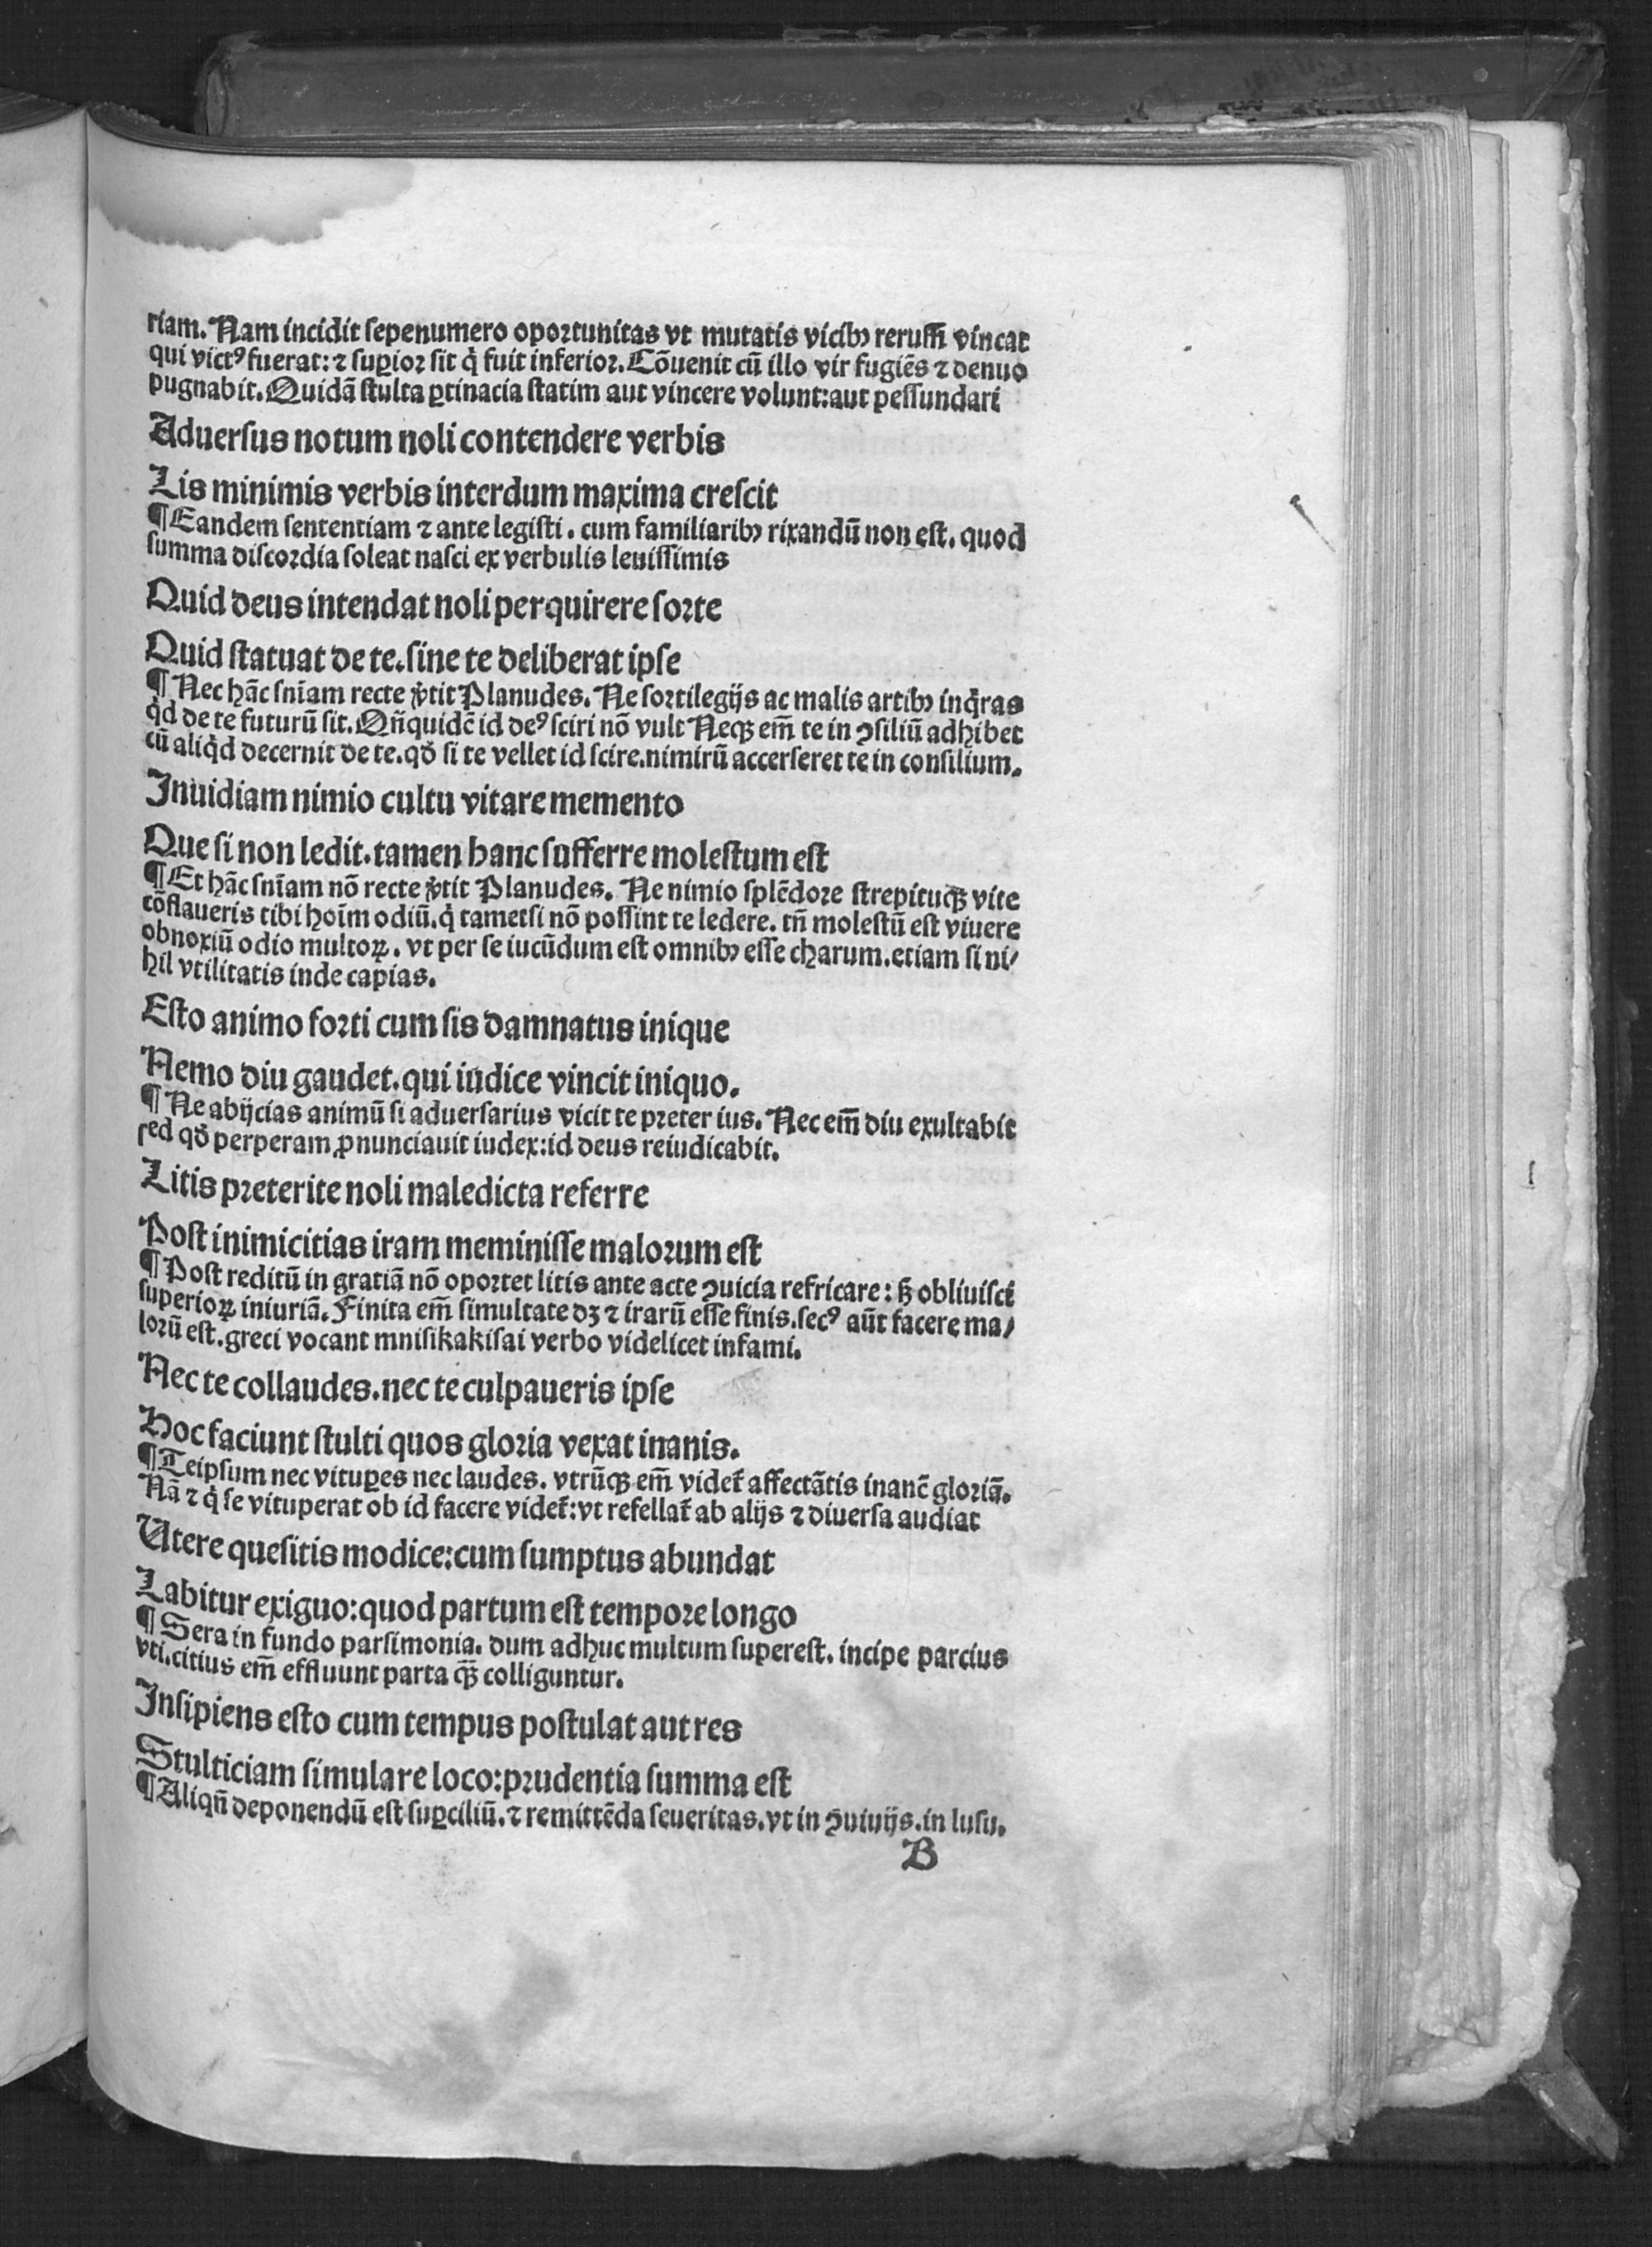 riam. Nam incidit sepenumero oportunitas vt mutatis vicibꝰ rerum̃ vincat
qui victꝰ fuerat: ⁊ suꝑior sit q̇ fuit inferior. Cōuenit cũ illo vir fugiẽs ⁊ denuo
pugnabit. Quidã stulta ꝑtinacia statim aut vincere volunt: aut pessundari
Aduersus notum noli contendere verbis
Lis minimis verbis interdum maxima crescit
¶ Eandem sententiam ⁊ ante legisti. cum familiaribꝰ rixandũ non est. quod
summa discordia soleat nasci ex verbulis leuissimis
Quid deus intendat noli perquirere sorte
Quid statuat de te. sine te deliberat ipse
¶ Nec hãc sniam recte v̓tit Planudes. Ne sortilegijs ac malis artibꝰ inq̇ras
q̇d de te futurũ sit. Qñquidẽ id deꝰ sciri nō vult Neqꝫ em̃ te in ꝯsiliũ adhibet
cũ aliq̇d decernit de te. qð si te vellet id scire. nimirũ accerseret te in consilium.
Inuidiam nimio cultu vitare memento
Que si non ledit. tamen hanc sufferre molestum est
¶ Et hãc sniam nō recte v̓tit Planudes. Ne nimio splẽdore strepituqꝫ vite
cōflaueris tibi hoim odiũ. q̇ tametsi nō possint te ledere. tñ molestũ est viuere
obnoxiũ odio multoꝝ. vt per se iucũdum est omnibꝰ esse charum. etiam si ni/
hil vtilitatis inde capias.
Esto animo forti cum sis damnatus inique
Nemo diu gaudet. qui iudice vincit iniquo.
¶ Ne abijcias animũ si aduersarius vicit te preter ius. Nec em̃ diu exultabit
sed qð perperam ꝓnunciauit iudex: id deus reiudicabit.
Litis preterite noli maledicta referre
Post inimicitias iram meminisse malorum est
¶ Post reditũ in gratiã nō oportet litis ante acte ꝯuicia refricare: ꝫ obliuisci
superioꝝ iniuriã. Finita em̃ simultate dꝫ ⁊ irarũ esse finis. secꝰ aũt facere ma/
lorũ est. greci vocant mnisikakisai verbo videlicet infami.
Nec te collaudes. nec te culpaueris ipse
Hoc faciunt stulti quos gloria vexat inanis.
¶ Teipsum nec vituꝑes nec laudes. vtrũqꝫ em̃ videt̃ affectãtis inanẽ gloriã.
Nã ⁊ q̇ se vituperat ob id facere videt̃: vt refellat̃ ab alijs ⁊ diuersa audiat
Utere quesitis modice: cum sumptus abundat
Labitur exiguo: quod partum est tempore longo
¶ Sera in fundo parsimonia. dum adhuc multum superest. incipe parcius
vti. citius em̃ effluunt parta qꝫ̃ colliguntur.
Insipiens esto cum tempus postulat aut res
Stulticiam simulare loco: prudentia summa est
¶ Aliqñ deponendũ est suꝑciliũ. ⁊ remittẽda seueritas. vt in ꝯuiuijs. in lusu.
B